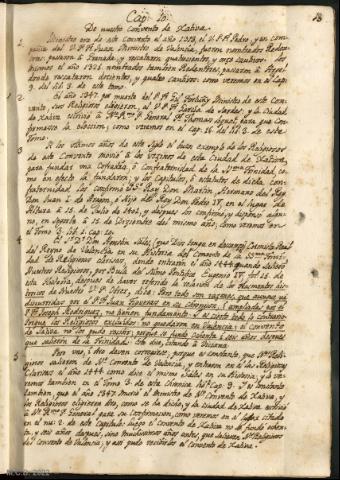 Cap. 10.
13
De nuestro Convento de Xativa.
1 Ministro era de este Convento el año 1313, el V. P. Fr. Pedro, y en com
pañia del V. P. Fr. Juan Ministro de Valencia, fueron nombrados Redemp
tores, passaron à Granada, y rescataron quatrocientos, y
mismos el año 1321 nombrados tambien Redemptores, passaron à
donde rescataron docientos, y quatro cautivos: como veremos en el Cap.
del lib. 3 de este tomo.
2 El año 1347 por muerte del P. Fr. Fortuny Ministro de este Con
vento sus Religiosos eligieron, al V. P. Fr. Garcia de Jordà; y la Ciudad
de Xativa escriviò à N. Rmo. P. General Fr. Thomas para que con
firmasse la eleccion; como veremos en el Cap. 16 del lib. 3 de este
Tomo.
3 A los ultimos años de este Siglo el buen exemplo de los Religiosos
de este Convento moviò à los vezinos de esta Ciudad de Xativa,
para fundar una Cofradia, ò Confraternidad de la SSma. Trinidad; co
mo en efecto la fundaron; y los Capitulos, ò estatutos de dicha con
fraternidad, los confirmò el S. Rey Don Martin Hermano del Rey
Don Juan I de Aragon, è Hijo del Rey Don Pedro IV, en el lugar de
Altura à 15 de Julio de 1402, y despues los confirmò, y
en à 15 de Diziembre del mismo año, como veremos en
el Tomo 3. lib. 2. cap. 10.
4 El S. D. Don Agustin Sales, (que Dios tenga en descanso) Cronista Real
del Reyno de Valencia, en su Historia del Convento de la SSma. Trini
dad de Religiosas Clarisas, donde entraron el año 1444 quando salieron
Nuestros Religiosos, por Bula del Sumo Pontifice Eugenio IV, fol. 15 de
esta Historia, despues de haver referido la relacion de los
de Nuestro V. P. dize: Pero todo son razones, que aunque
discurridas por el P. Fr. Juan Figueras en su Chronicon, i ampliadas por el P.
Fr. Joseph Rodriguez, no tienen fundamento: i es cierto todo lo contrario
Porque los Religiosos excluidos no quedaron en Valencia: el convento
de Xativa no los pudo recibir, porque se fundò cien años despues
que salieron de la Trinidad. Esto dize, citando à Diviana.
5 Pero uno, i otro deven corregirse, porque es constante, que Ntros. Reli
giosos salieron de N. Convento de Valencia, y entraron en èl las Religiosas
Clarisas el año 1444 como dize el mismo Sales en su Historia; y lo ve
remos tambien en el Tomo 3 de esta Chronica lib. Cap. 3. Y es constante
tambien, que el año 1347 muriò el Ministro de N. Convento de Xativa, y
los Religiosos eligieron otro, como se ha dicho, y la Ciudad de Xativa escriviò
à N. Rmo. P. General para su Confirmacion, como veremos en el lugar citado
en el nu. 2 de este Capitulo: luego el Convento de Xativa no se fundò
y mil años despues, sino muchissimos años antes, que saliessen Ntros. Religiosos
del Convento de Valencia; y assi pudo recibirlos el Convento de Xativa.